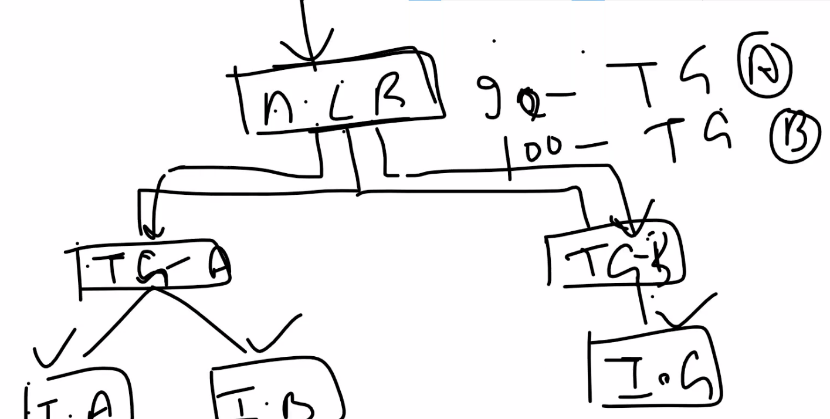 A.LB
90- TG A
100- TG B
TG-A
TG-B
I.A
I.B
I.G